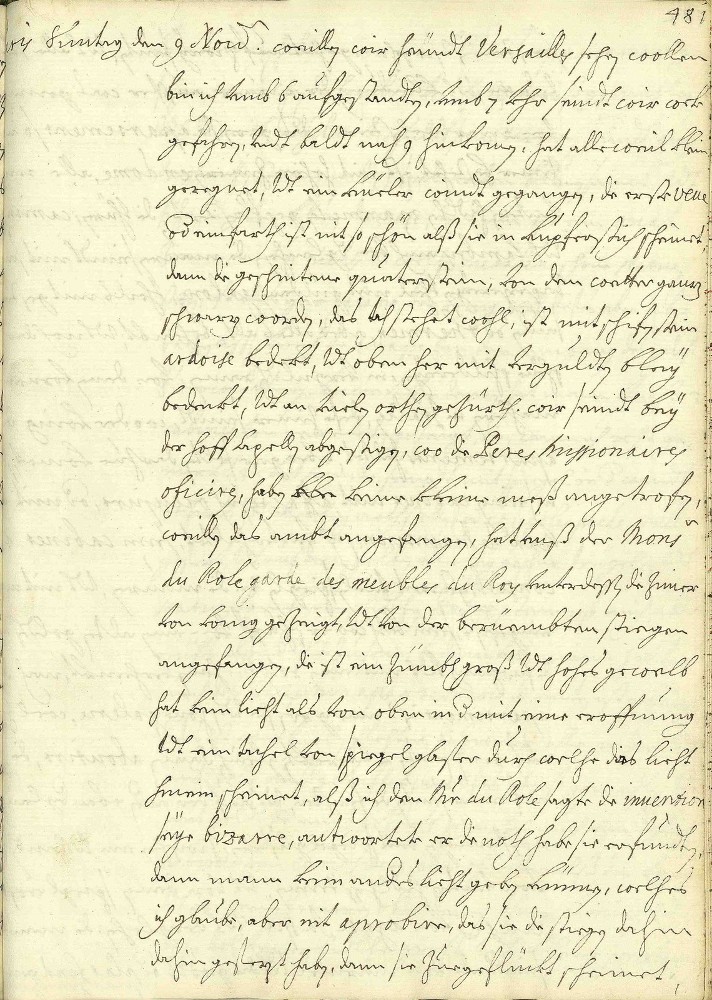 481
Suntag den 9 Nov. weillen wir heündt Versailles sehen wollen
bin ich umb 6 aufgestandten, umb 7 Uhr seindt wir wek
gefahren, undt baldt nach 9 hinkomen, hat alleweil klein
geregnet, Udt ein küeler windt gegangen, die erste veue
od einfarth ist nit so schön alß sie in kupferstich scheinet,
dann die geschnitene quaterstein, von dem wetter gantz
schwartz worden, das tach stehet wohl, ist mit schifenstein
ardoise bedekt, Udt oben her mit verguldten bley
bedenkt, Udt an vielen orthen geziirth. wir seindt bey
der hoff Capellen abgestigen, wo die Peres Missionaires
oficiren, haben keine kleine meß angetrofen,
weillen das ambt angefangen, hat unß der Mons
du Role garde des meubles du Roy unterdessen die Zimer
von konig gezeigt, Udt von der berüembten stiegen
angefangen, die ist ein Zümbl. groß Udt hohes gewelb
hat kein licht als von oben in d mit eine eroffnung
Udt ein tachel von spiegel glaser durch welche das licht
hinein scheinet, alß ich dem Mr du Role sagte die invention
seye bizarre, antwortete er die noth habe sie erfundten,
dann mann kein anders licht geben können, welches
ich glaube, aber nit aprobire, das sie die stiegen dahin
dahin gesetzt haben, dann sie Zuegeflückt scheinet,